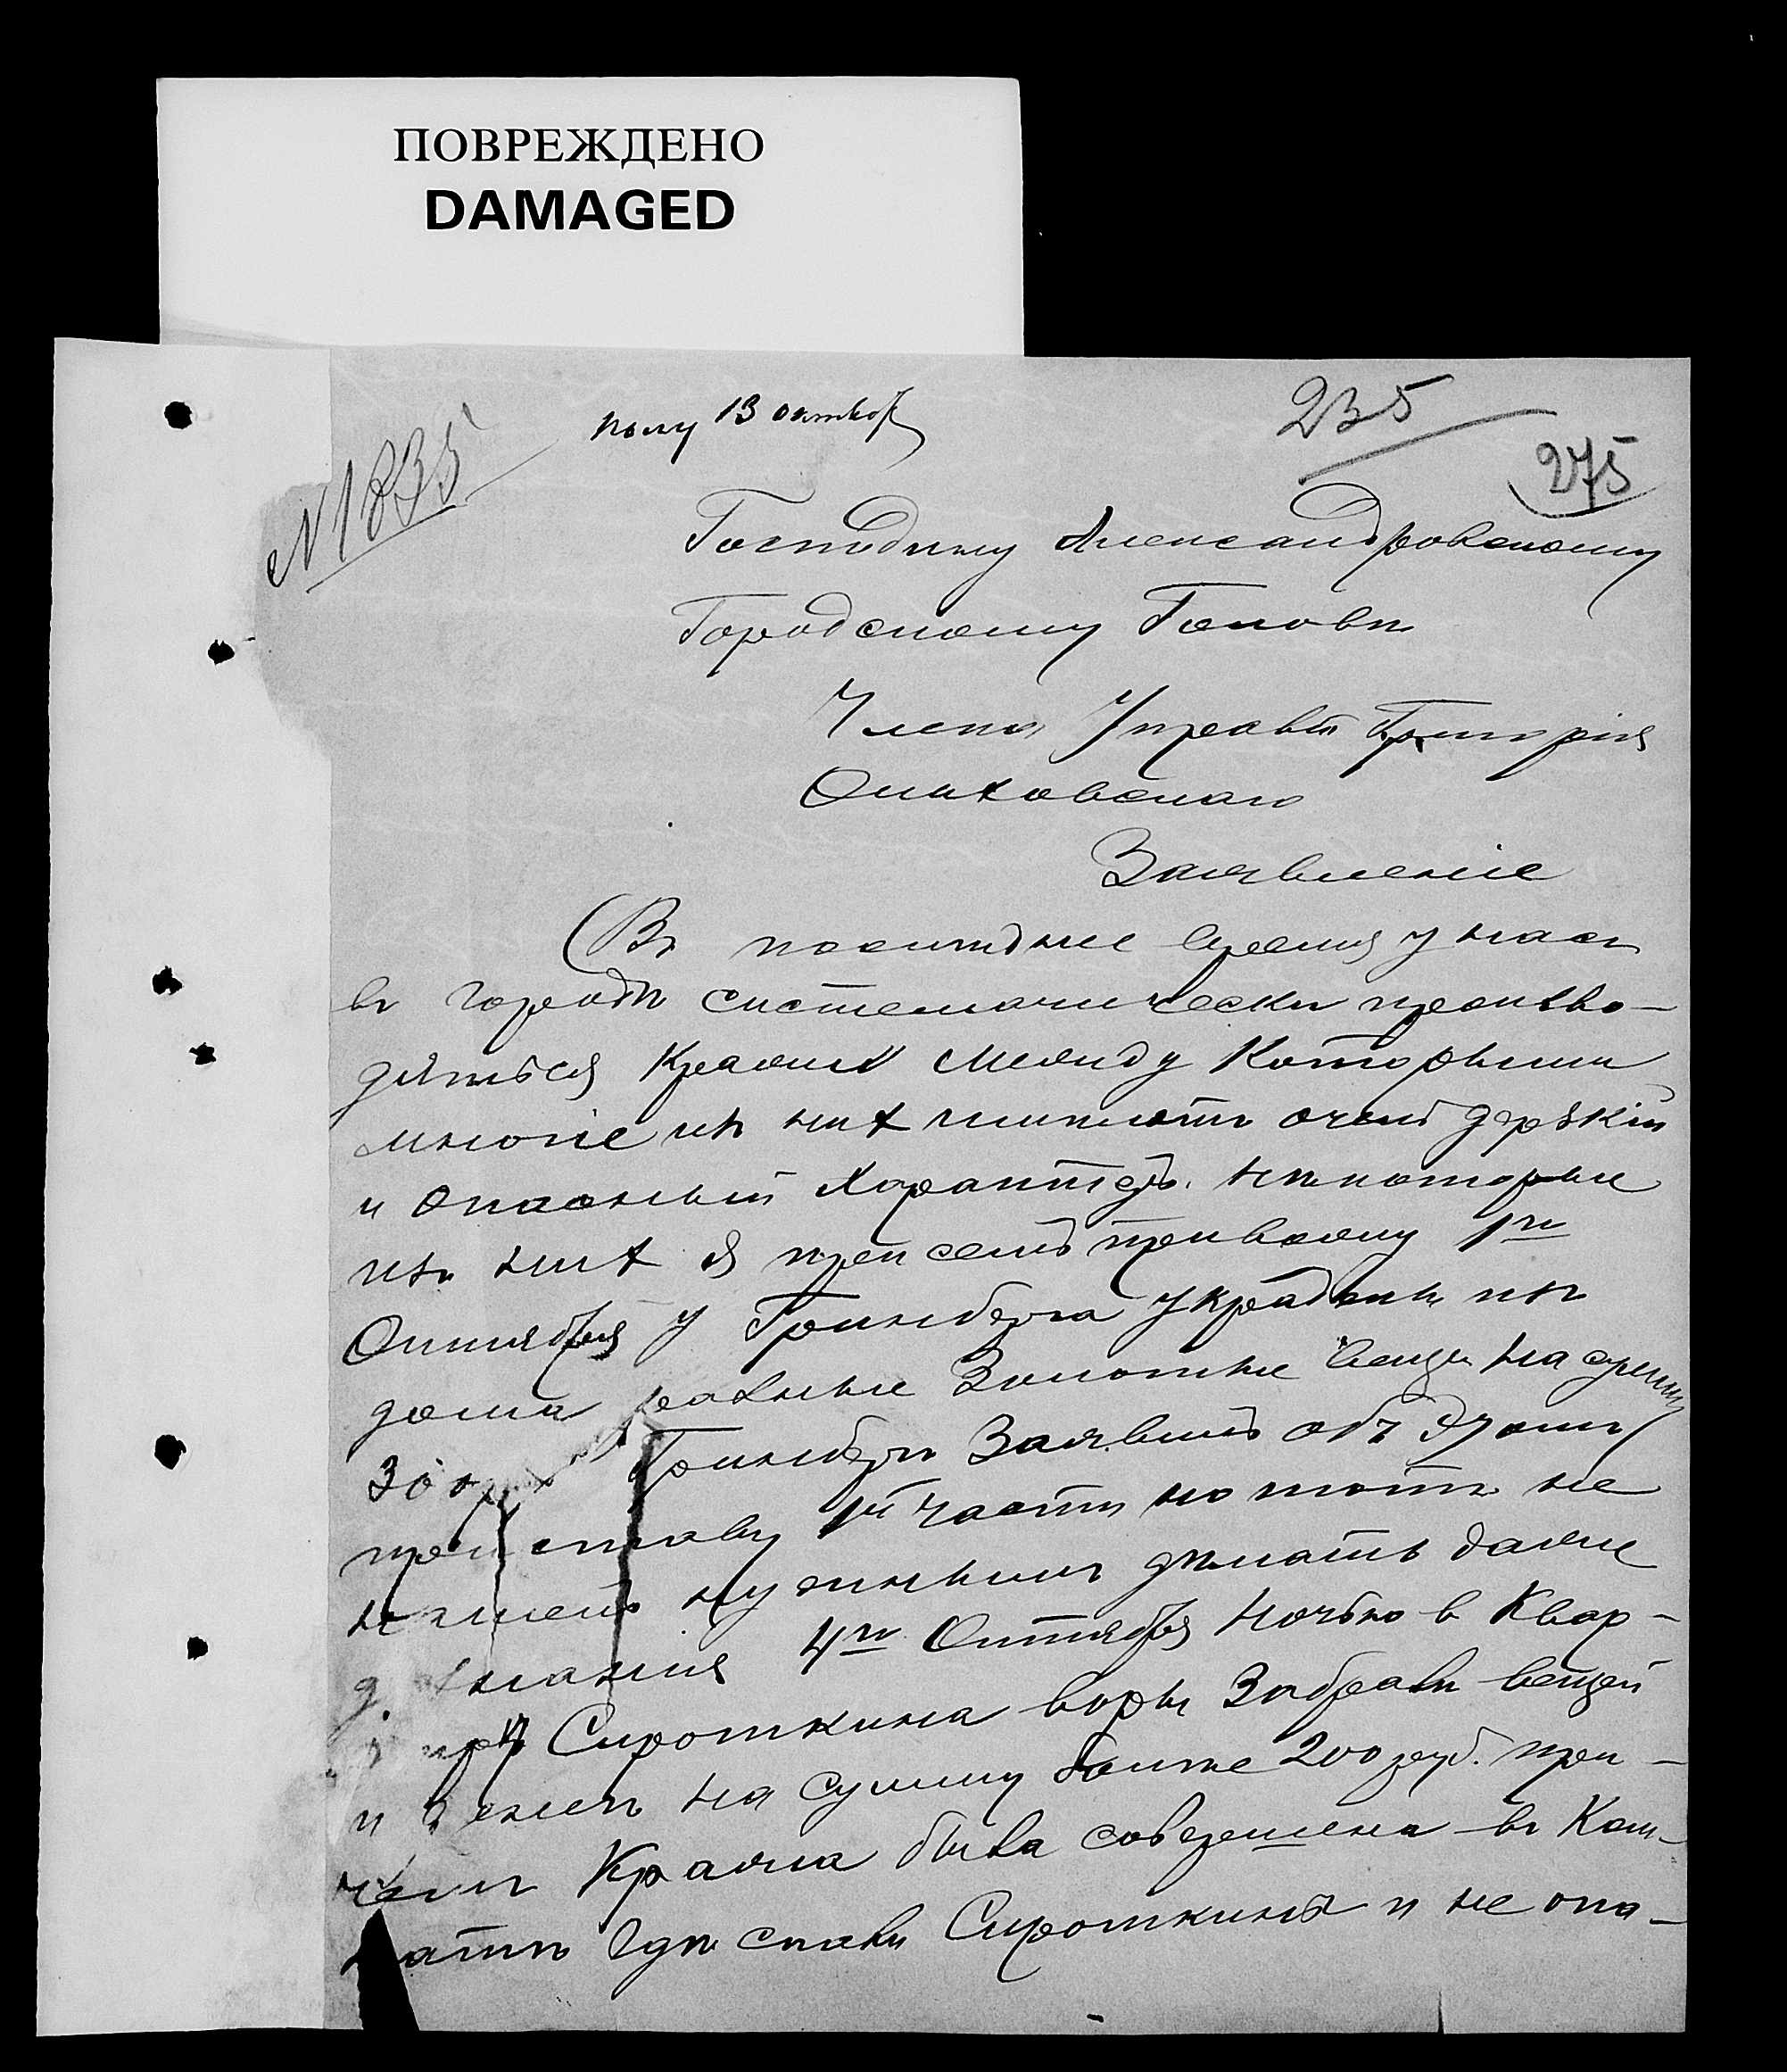 ПОВРЕЖДЕНО
DAMAGED
полу 13 октяб
235
275
№ 1835
Господину Александровскому
Городскому Головѣ
Члена Управы Григорія
Заявленіе
Въ послѣднее время у насъ
въ городѣ систематически произво-
дяться кражи между которыми
многіе изъ них имѣютъ очень дерзкій
и опасный характеръ. нѣкоторые
изъ них я при семъ привожу 1го
Октября у Гринберга украдены изъ
дома разные золотые вещи на сумму
300 Гринбергъ Заявилъ объ этомъ
приставу 1й части но тотъ не
нашелъ нужнымъ дѣлать даже
дознанія 4го Октября ночью в квар-
Сироткина воры забрали вещей
и денегъ на сумму болѣе 200 руб. при-
чемъ Кража была совершена въ Ком-
натѣ гдѣ спали Сироткины и не опа-